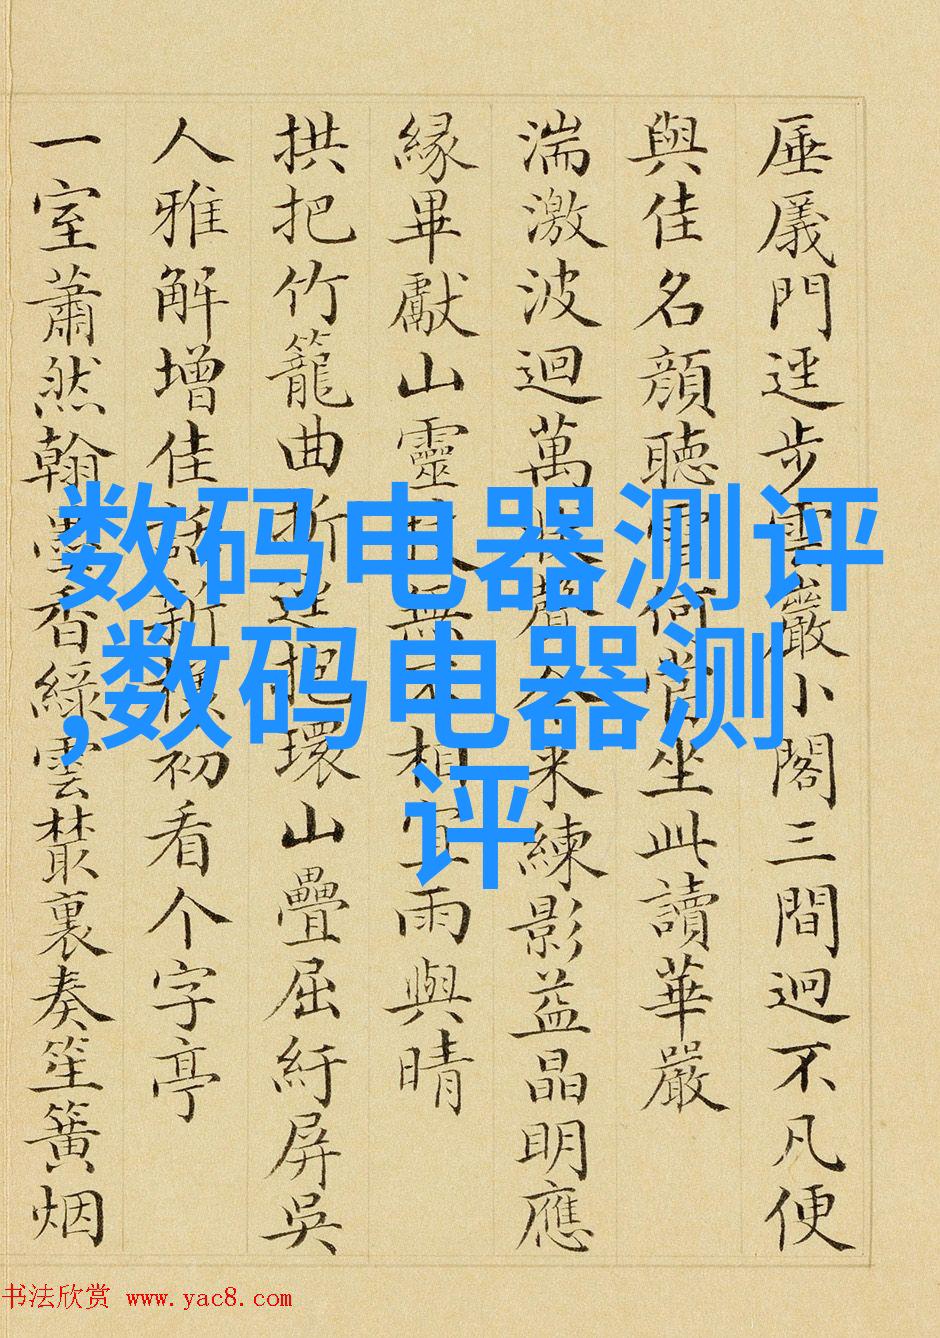 厜㕒門逕步雲巖小閣三間迥不凡便
與佳名顏聽雪何當坐此讀華嚴
湍激波迴萬聲來練影益晶明應
緣畢獻山靈技無不相宜雨與晴
拱把竹籠曲折把環山疊屈紆屏吳
人雅解增佳話新樣初看个字亭
一室蕭然翰墨香綠雲叢裏奏笙簧烟
数码电器测评
,数码电器测
评
书法欣赏 www.yac8.com